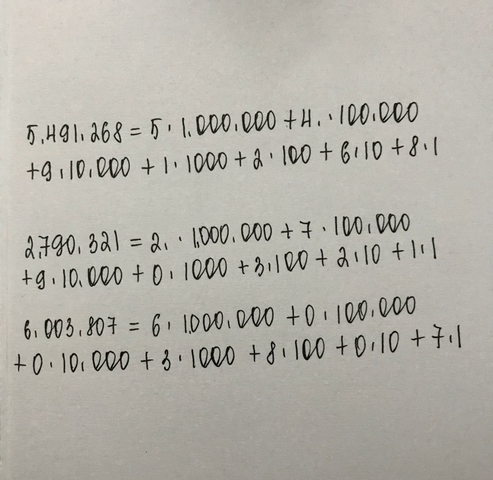 5.491.268 = 5 · 1.000.000 + 4. · 100.000
+9 · 10.000 + 1 · 1000 + 2 · 100 + 6 · 10 + 8 · 1
2.790.321 = 2. · 1.000.000 + 7 · 100.000
+9 · 10.000 + 0 · 1000 + 3 · 100 + 2 · 10 + 1 · 1
6.003.807 = 6 · 1.000.000 + 0 · 100.000
+0 · 10.000 + 3 · 1000 + 8 · 100 + 0 · 10 + 7 · 1